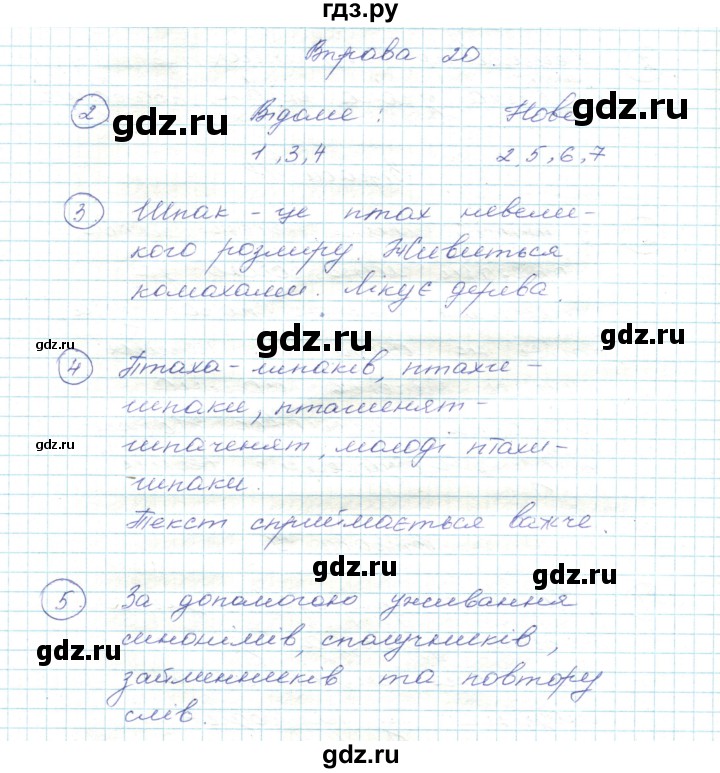 гдз.ру
Вправа 20.
2 Відоме : Нове
gdz.ru gdz.ru
1, 3, 4 2, 5, 6, 7
3. Шпак - це птах невели-
кого розміру. Живиться
комахами. Лікує дерева.
gdz.ru gdz.ru gdz.ru
4 Птаха - шпаків, птахи -
шпаки, пташенят -
gdz.ru шпаченят, молоді птахи -
-шпаки.
Текст сприймається важче.
gdz.ru gdz.ru
5. За допомогою уживання
синонімів, сполучників,
gdz.ru займенників та повтору
слів.
gdz.ru
gdz.ru